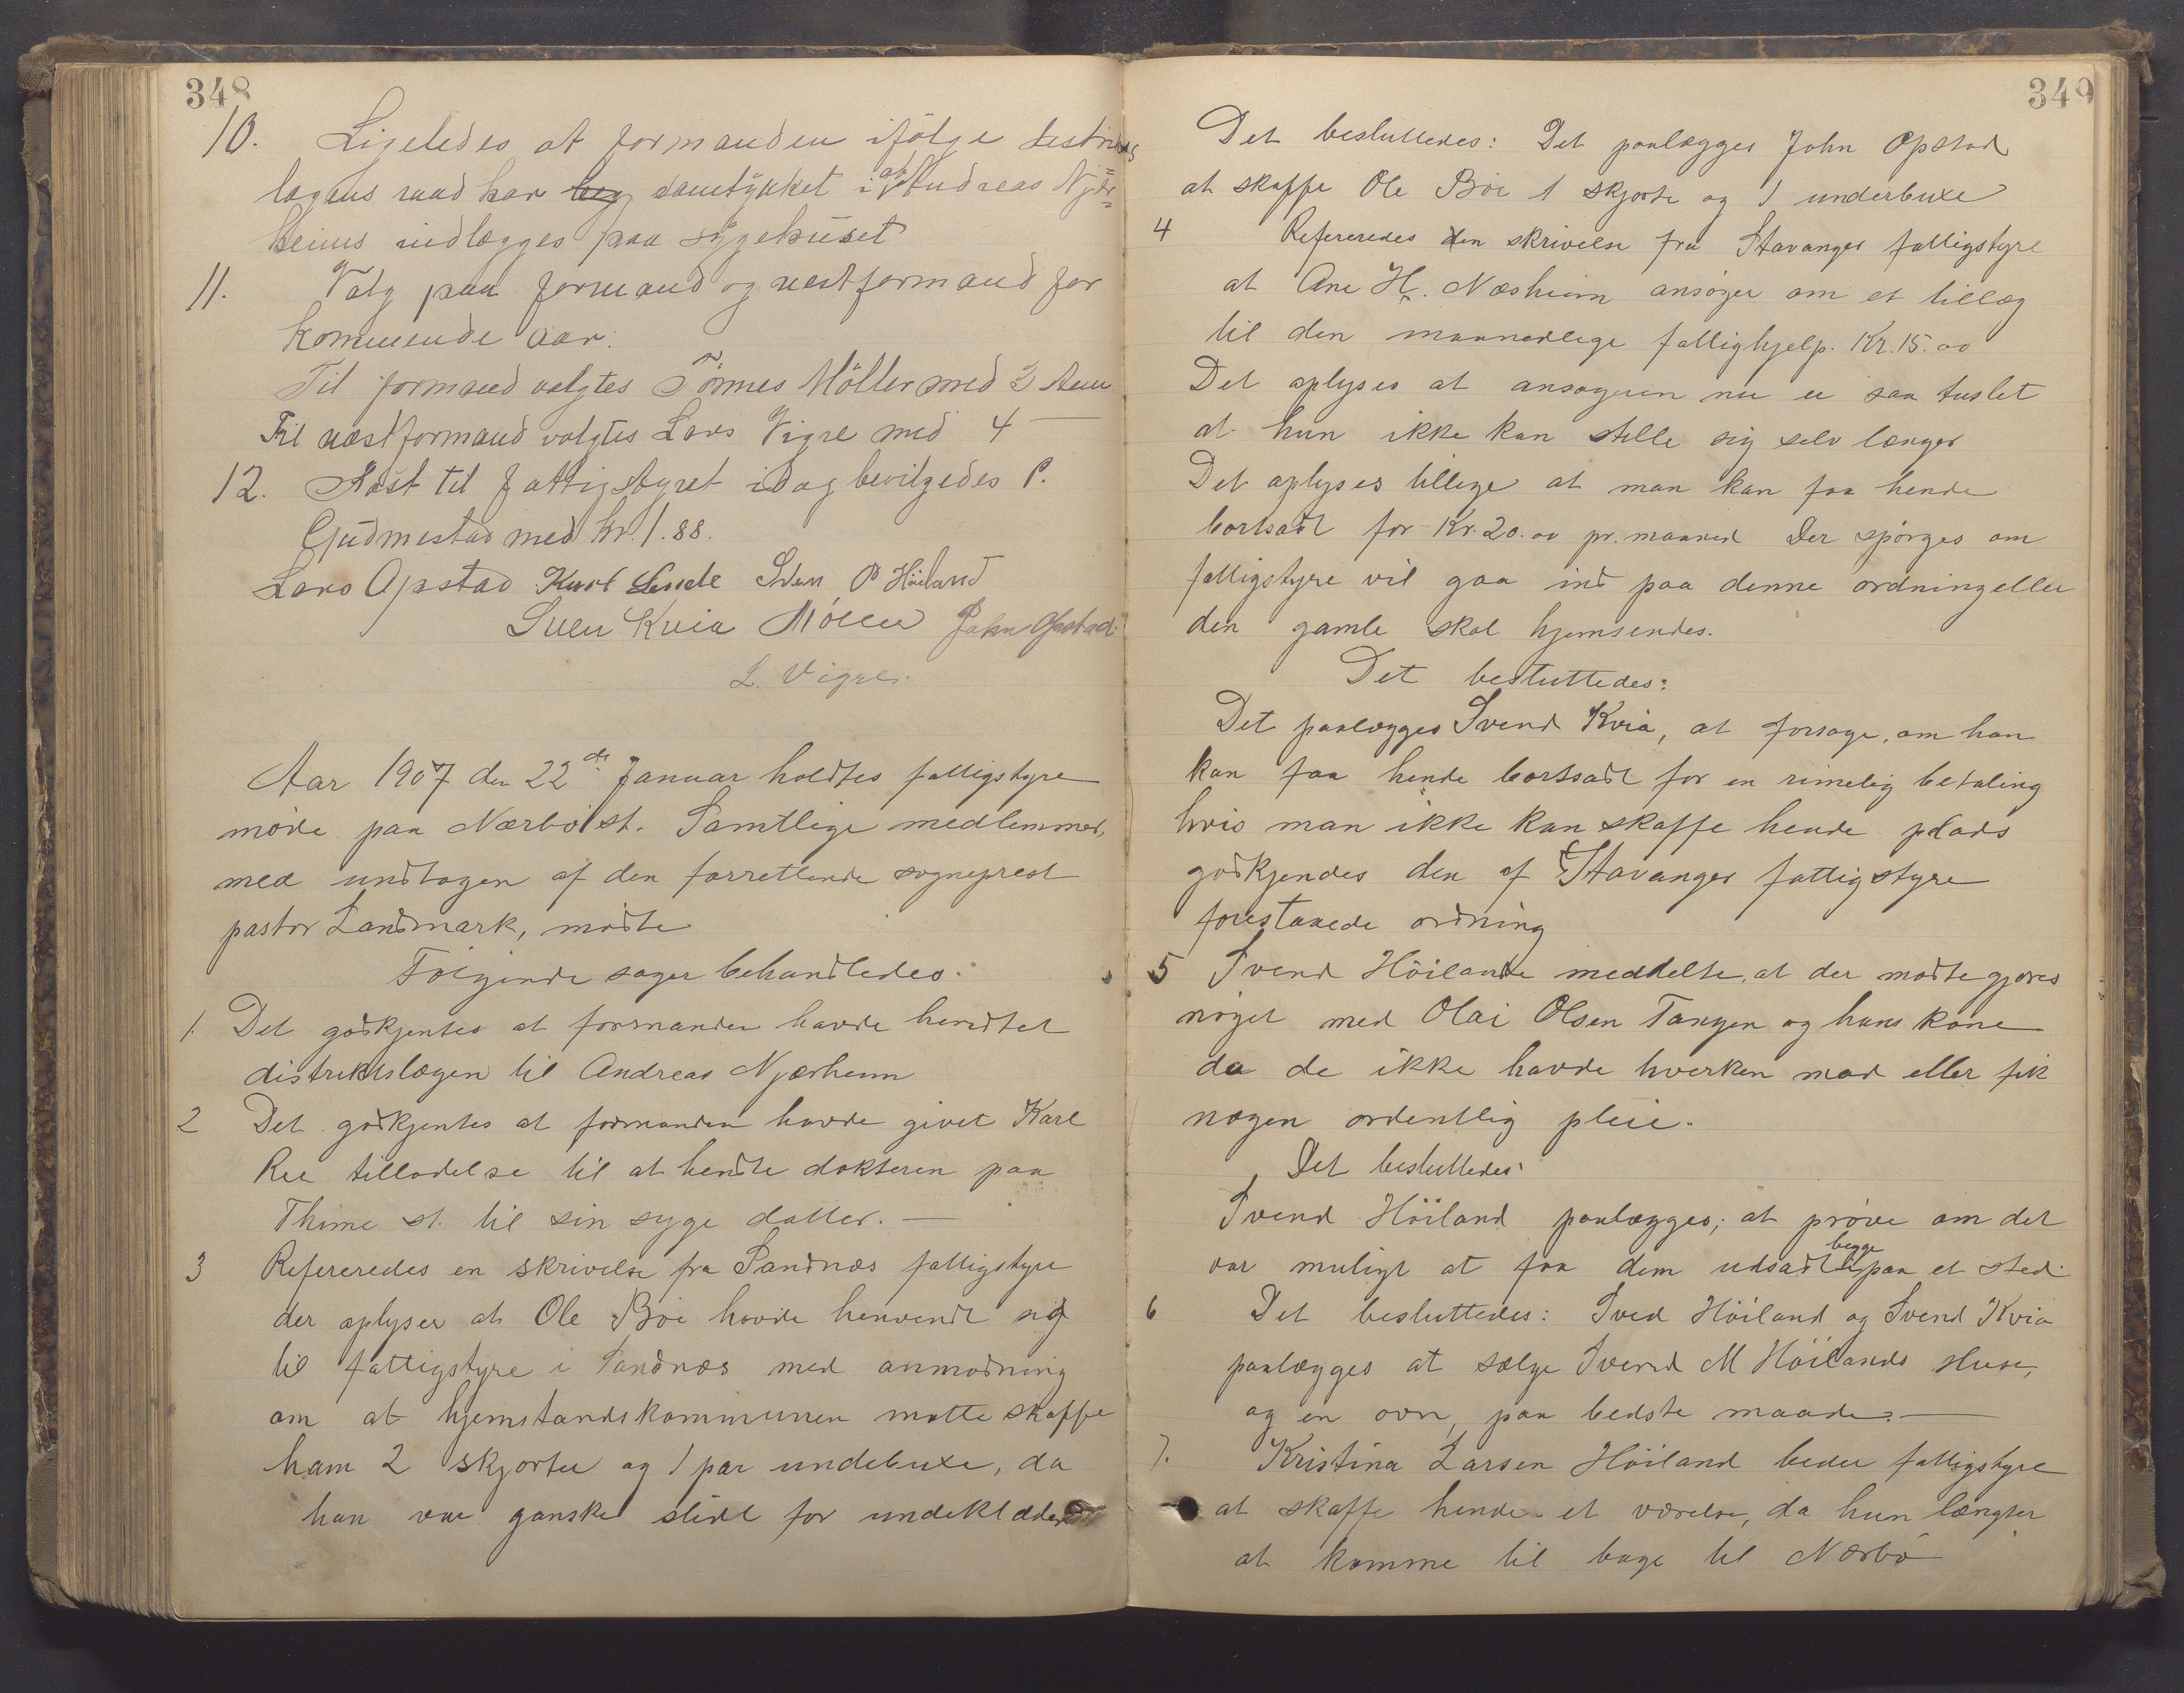 348
10. Ligeledes at formanden ifölge distrikts
lægens raad har samtykket i at Andreas Njær=
heims indlægges paa sygehuset
11. Valg paa formand og næstformand for
kommende aar:
Til formand valgtes Tönnes Möller med 3 stem
Til næstformand valgtes Lars Vigre med 4 —
12. Kost til fattigstyret idag bevilgedes P.
Gudmestad med kr. 1.88.
Lars Opstad Kurt Lende Sven P Höiland
Sven Kvia Möller John Opstad.
L. Vigre.
Aar 1907 den 22de Januar holdtes fattigstyre
möde paa Nærbö st. Samtlige medlemmer,
med undtagen af den forrettende sogneprest
pastor Landmark, mödte
Fölgende sager behandledes.
1. Det godkjentes at formanden havde hendtet
distriktslægen til Andreas Njærheim
2 Det godkjentes at formanden havde givet Karl
Ree tilladelse til at hendte doktoren paa
Thime st. til sin syge datter. —
3 Refereredes en skrivelse fra Sandnæs fattigstyre
der oplyser at Ole Böe havde henvendt sig
til fattigstyre i Sandnæs med anmodning
om at hjemstandskommunen maatte skaffe
ham 2 skjorter og 1 par underbuxe, da
han var ganske slidt for undeklæder
349
Det besluttedes: Det paalægges John Opstad
at skaffe Ole Böe 1 skjorte og 1 underbuxe
4 Refereredes en skrivelse fra Stavanger fattigstyre
at Ane H. Næsheim ansöger om et tillæg
til den maanedlege fattighjelp. Kr. 15.00
Det oplyses at ansögeren nu er saa tuslet
at hun ikke kan stelle sig selv længer
Det oplyses tillige at man kan faa hende
bortsadt for Kr. 20.00 pr. maaned Der spörges om
fattigstyre vil gaa ind paa denne ordning eller
den gamle skal hjemsendes.
Det besluttedes:
Det paalægges Svend Kvia, at forsöge, om han
kan faa hende bortsadt for en rimelig betaling
hvis man ikke kan skaffe hende plads
godkjendes den af Stavanger fattigstyre
foreslaaede ordning
5 Svend Höilande meddelte, at der maatte gjöres
noget med Olai Olsen Tangen og hans kone
da de ikke havde hverken mad eller fik
nogen ordentlig pleie.
Det besluttedes:
Svend Höiland paalægges; at pröve om det
var muligt at faa dem udsadt begge paa et sted.
6 Det besluttedes: Sved Höiland og Svend Kvia
paalægges at sælge Svend M Höilands Huse,
og en ovn, paa bedste maade. —
7. Kristina Larsen Höiland beder fattigstyre
at skaffe hende et værelse, da hun længter
at komme til bage til Nærbö